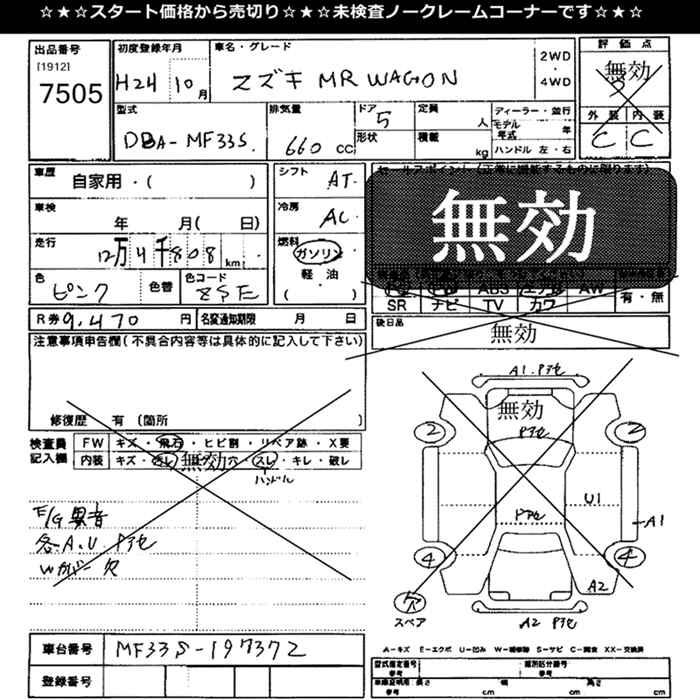 ☆★☆★スタート価格から売切り☆★☆★未検査ノークレームコーナーです☆★☆
出品番号
[1912]
7505
初度登録年月
H24 10月
車名・グレード
スズキ MR WAGON
2WD
・
4WD
評価点
無効
外装 内装
C C
型式
DBA-MF33S
排気量
660 cc
ドア
5
形状
定員
人
積載
kg
ディーラー・並行
モデル
年式 年
ハンドル 左・右
車歴
自家用・( )
車検
年 月( 日)
走行
12万4千808 km
色
ピンク
色替
色コード
ZSE
シフト
AT
冷房
AC
燃料
ガソリン
軽・油
( )
無効
ABS
AW
SR ナビ TV カワ
有・無
R券 9,470 円
名変通知期限 月 日
後日品
無効
注意事項申告欄(不具合内容等は具体的に記入して下さい)
修復歴 有 (箇所 )
検査員
記入欄
FW キズ・飛石・ヒビ割・リペア跡・X要
内装 キズ・穴・スレ・キレ・破レ
無効
ハンドル
E/G 異音
各A.U. Pアセ
Wカバー欠
A1.Pアセ
無効
Pアセ
2 2
Pアセ
U1
A1
4 4
A2
穴
スペア
A2 Pアセ
車台番号
MF33S-197372
登録番号
A-キズ E-エクボ U-凹み W-補修跡 S-サビ C-腐食 XX-交換済
型式指定番号
参考
類別区分番号
参考
車庫証明用:長さ 幅 高さ
参考 cm cm cm